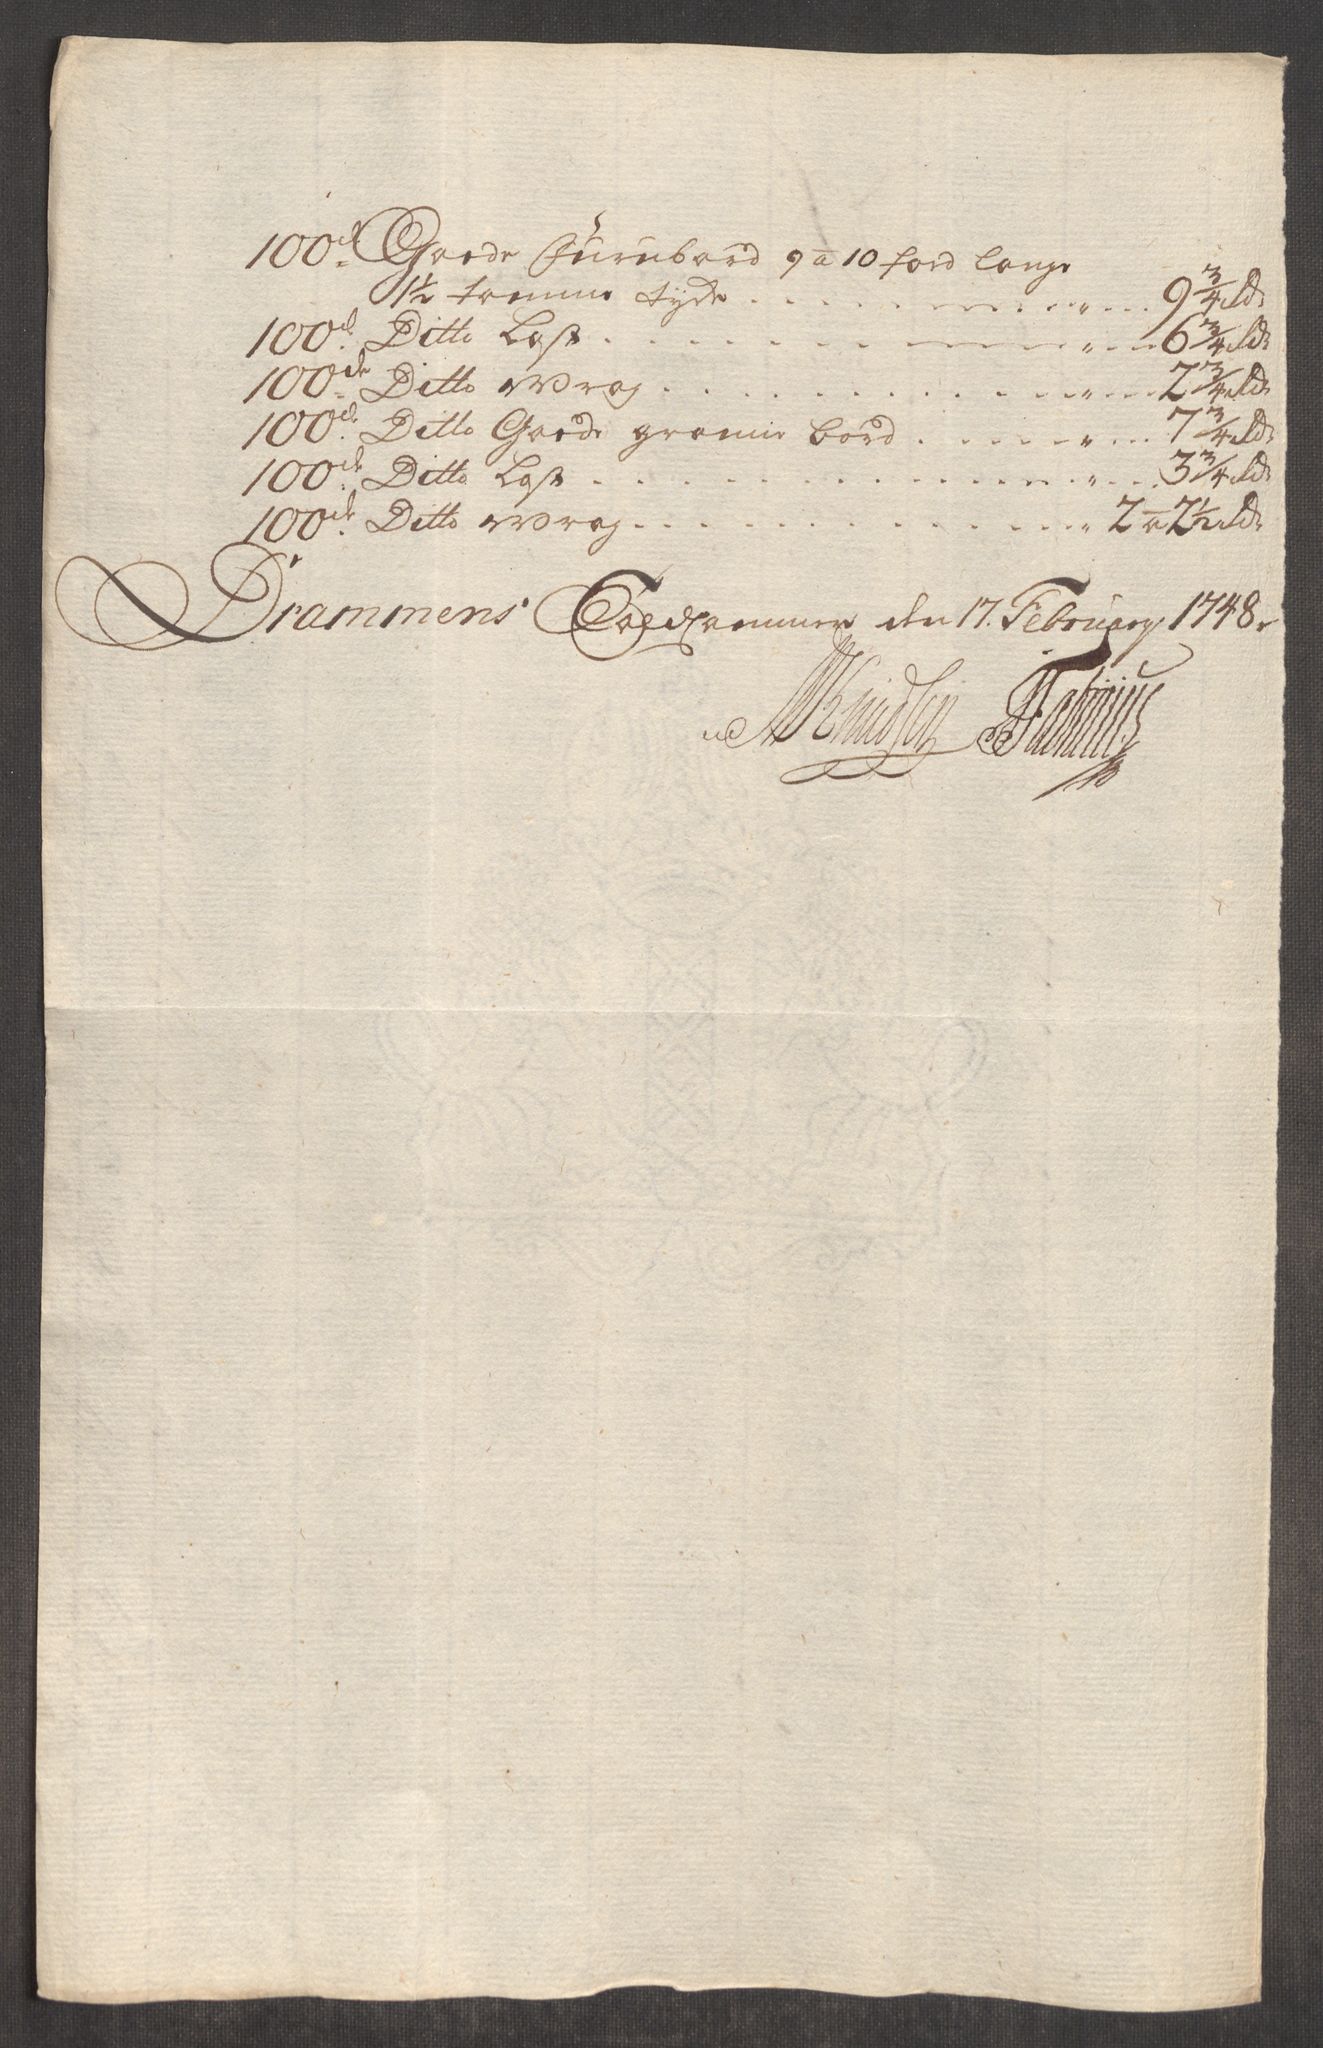 100de Goede Furubord 9 a 10 foed lange
1½ tomme tyde 9¾ rdr
100de Ditto Last 6¾ rdr
100de Ditto Wrag 2¾ rdr
100de Ditto Goede grann bord 7¾ rdr
100de Ditto Last 3¾ rdr
100de Ditto Wrag 2 a 2½ rdr
Drammens Toldkammer den 17. February 1748
Knudsen Fabritius